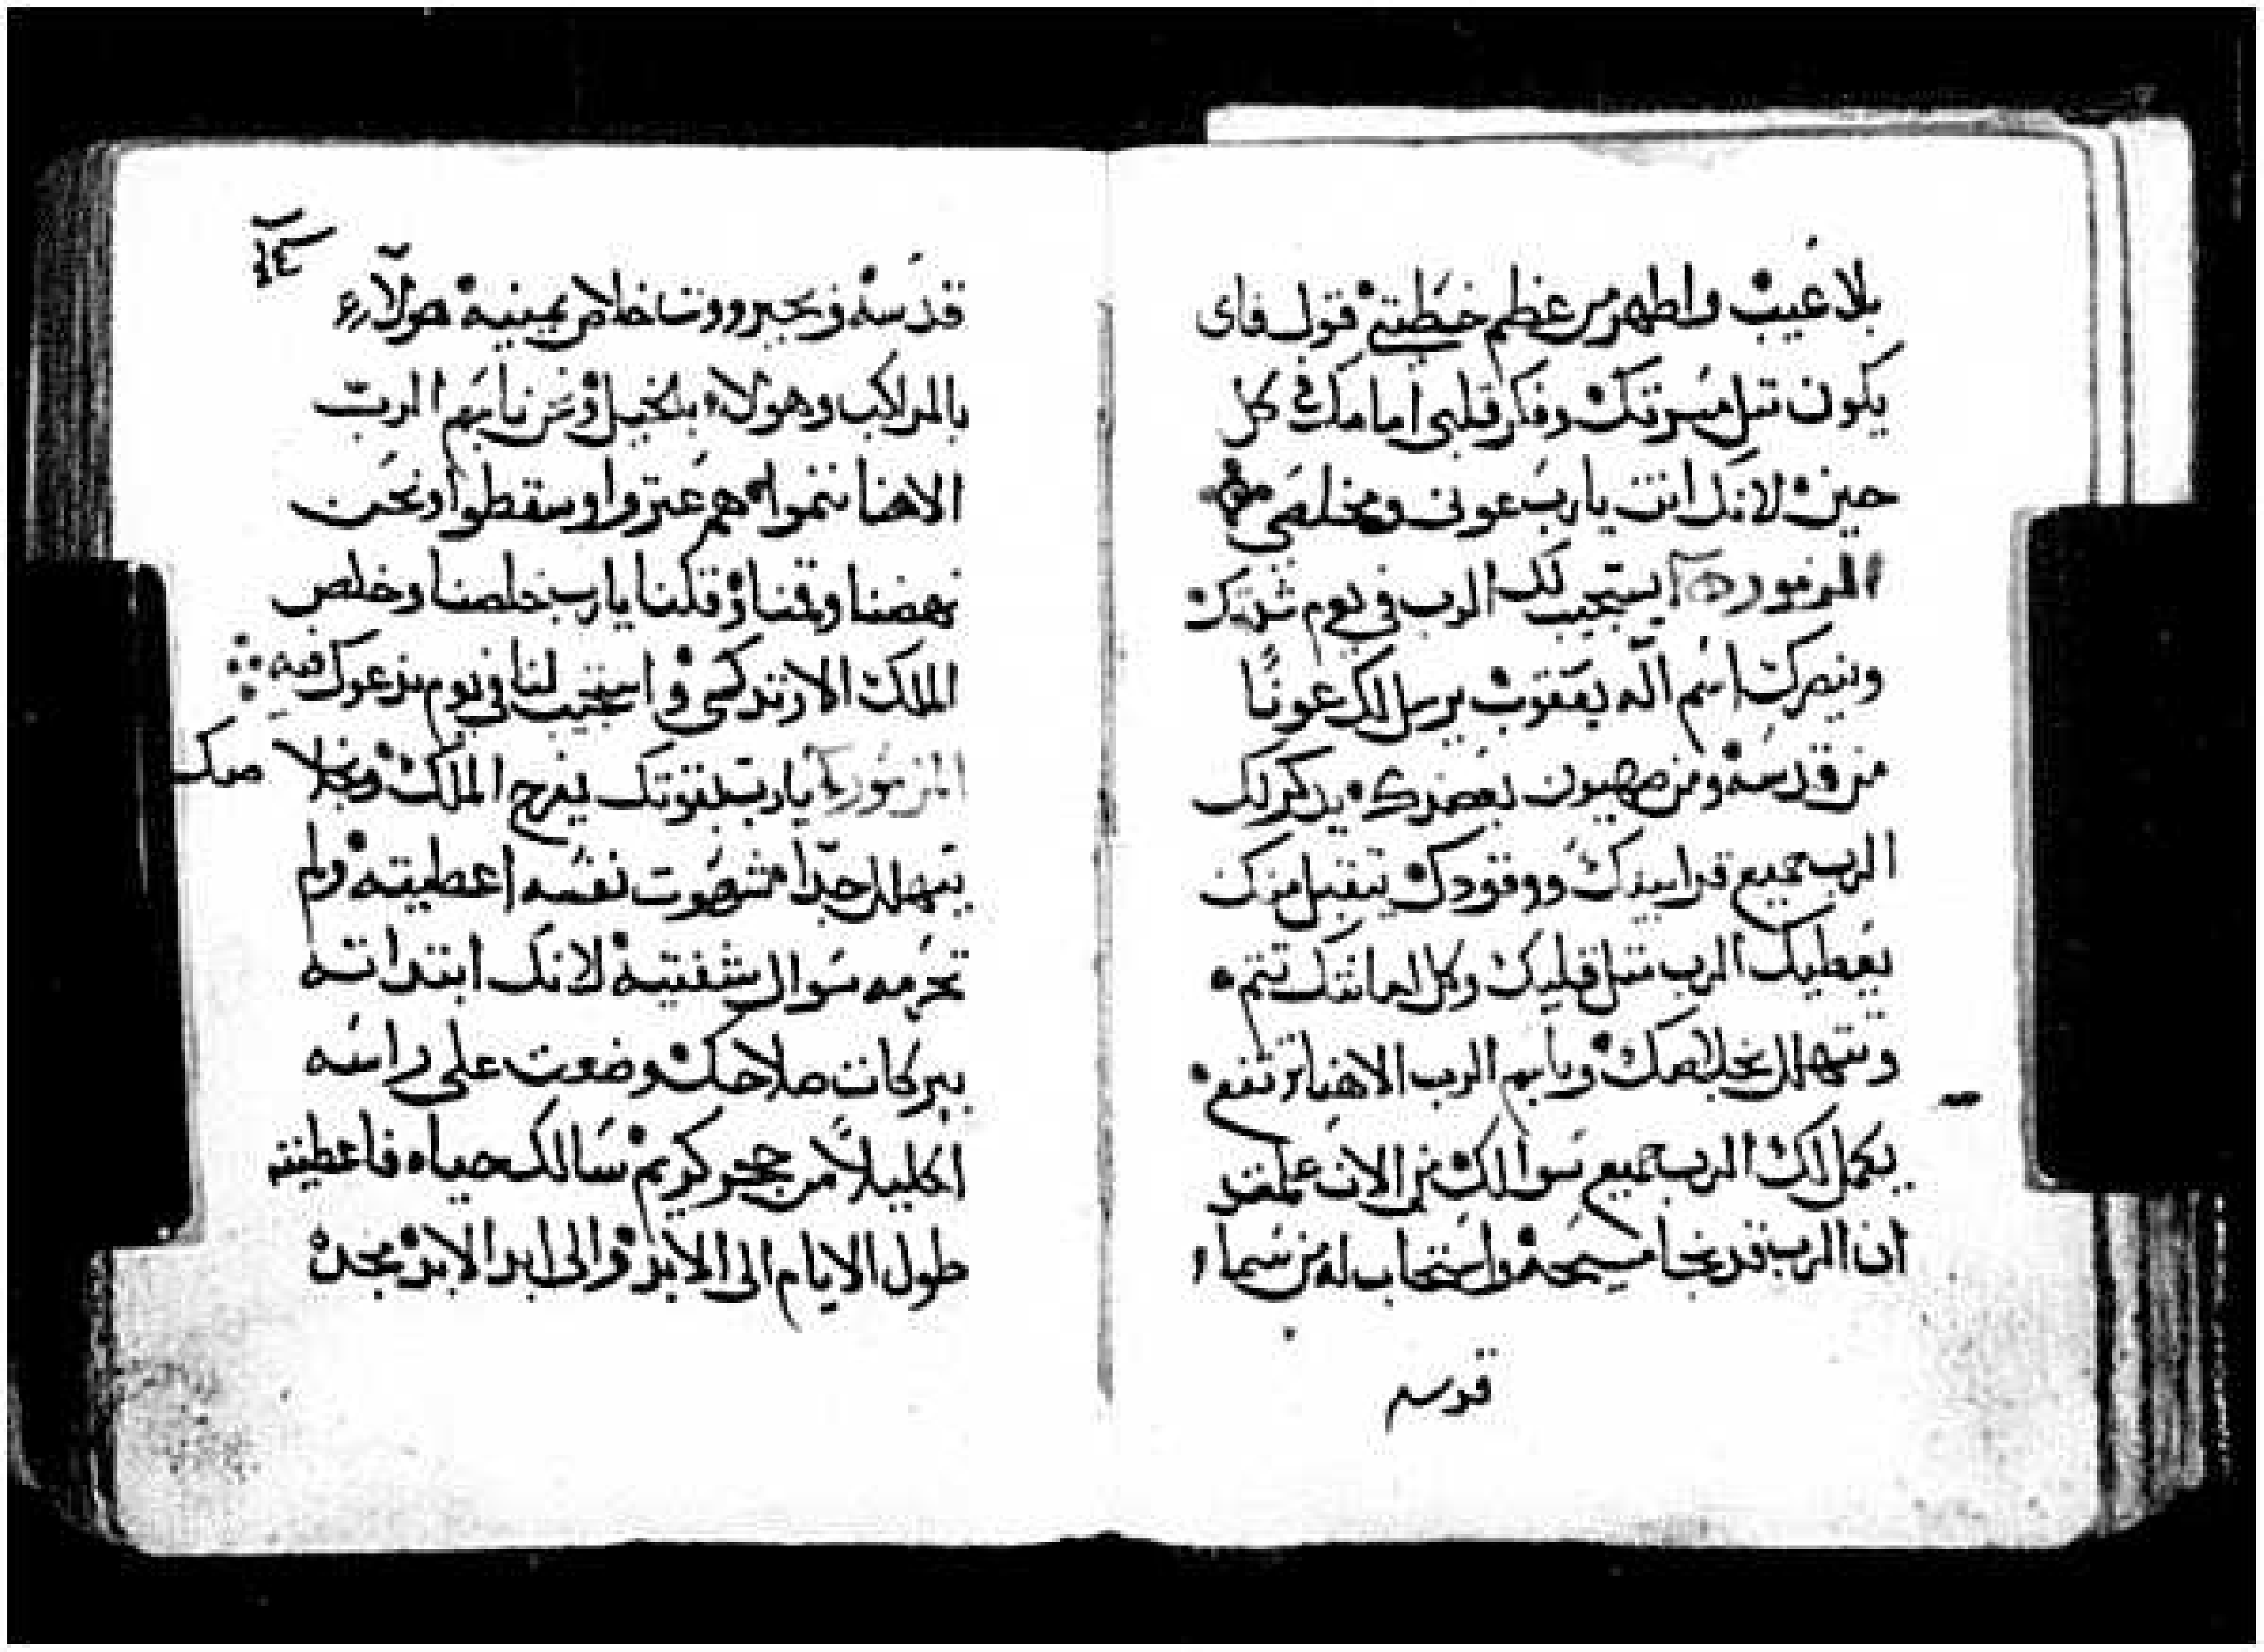 بلا عيب واطهر من عظم خطيتي قول فاى
يكون مثل مسرتك وفكر قلبى امامك فى كل
حين لانك انت يارب عونى ومخلصى
المزمور يستجيب لك الرب فى يوم شدتك
وينصرك اسم اله يعقوب يرسل لك عونًا
من قدسه ومن صهيون يعضدك يذكر لك
الرب جميع قرابينك ووقودك يتقبل منك
يعطيك الرب مثل قلبك وكل امانتك تتم
ونتهلل بخلاصك وباسم الرب الاهنا نرتفع
يكمل لك الرب جميع سوالك من الان علمت
ان الرب قد نجا مسيحه واستجاب له من سماء
قدسه
قدسه وبجبروت خلاص يمينه هولاء
بالمراكب وهولاء بالخيل ونحن باسم الرب
الاهنا ننموا هم عتروا وسقطوا ونحن
نهضنا وقمنا وقلنا يارب خلصنا وخلص
الملك الارتدكسى واستجيب لنا فى يوم ندعوك فيه
المزمور يارب بقوتك يفرح الملك وبخلاصك
يتهلل جدا شهوت نفسه اعطيته ولم
تحرمه سوال شفتيه لانك ابتداته
ببركات صلاحك وضعت على راسه
اكليلاً من حجر كريم سالك حياه فاعطيته
طول الايام الى الابد والى ابد الابد مجده